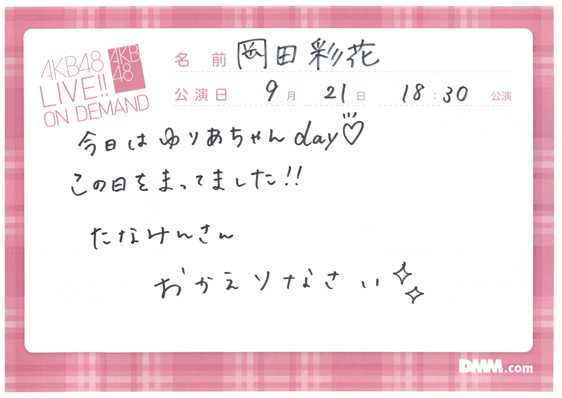 AKB48
LIVE!!
ON DEMAND
AKB
48
名 前 岡田彩花
公演日 9月 21日 18:30 公演
今日はゆりあちゃんday♡
この日をまってました!!
たなけんさん
おかえりなさい
DMM.com